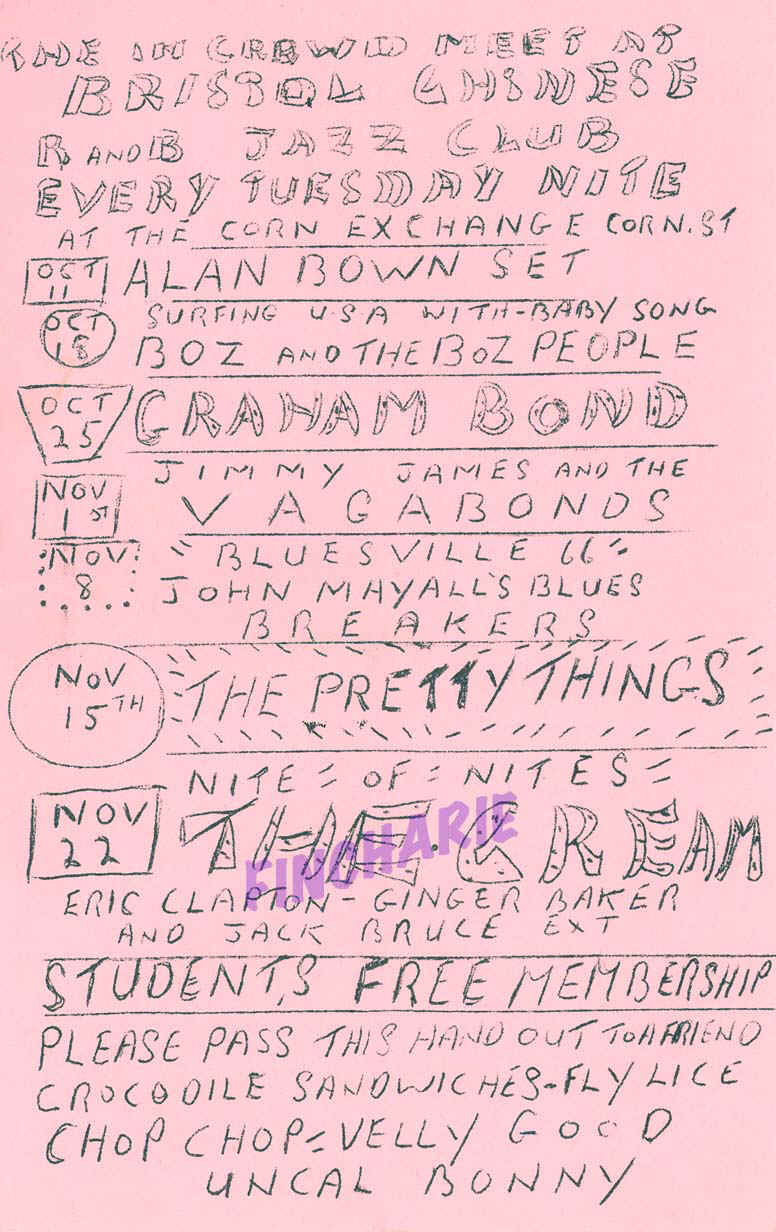 THE IN CROWD MEET AT
BRISTOL CHINESE
R AND B JAZZ CLUB
EVERY TUESDAY NITE
AT THE CORN EXCHANGE CORN. ST
OCT 11 ALAN BOWN SET
OCT 18 SURFING U.S.A WITH-BABY SONG
BOZ AND THE BOZ PEOPLE
OCT 25 GRAHAM BOND
JIMMY JAMES AND THE
NOV 1ST VAGABONDS
NOV 8 "BLUESVILLE 66"
JOHN MAYALL'S BLUES
BREAKERS
NOV 15TH THE PRETTY THINGS
NITE = OF = NITES =
NOV 22 THE. CREAM
FINCHARIE
ERIC CLAPTON - GINGER BAKER
AND JACK BRUCE EXT
STUDENT,S FREE MEMBERSHIP
PLEASE PASS THIS HAND OUT TO A FRIEND
CROCODILE SANDWICHES-FLY LICE
CHOP CHOP = VELLY GOOD
UNCAL BONNY